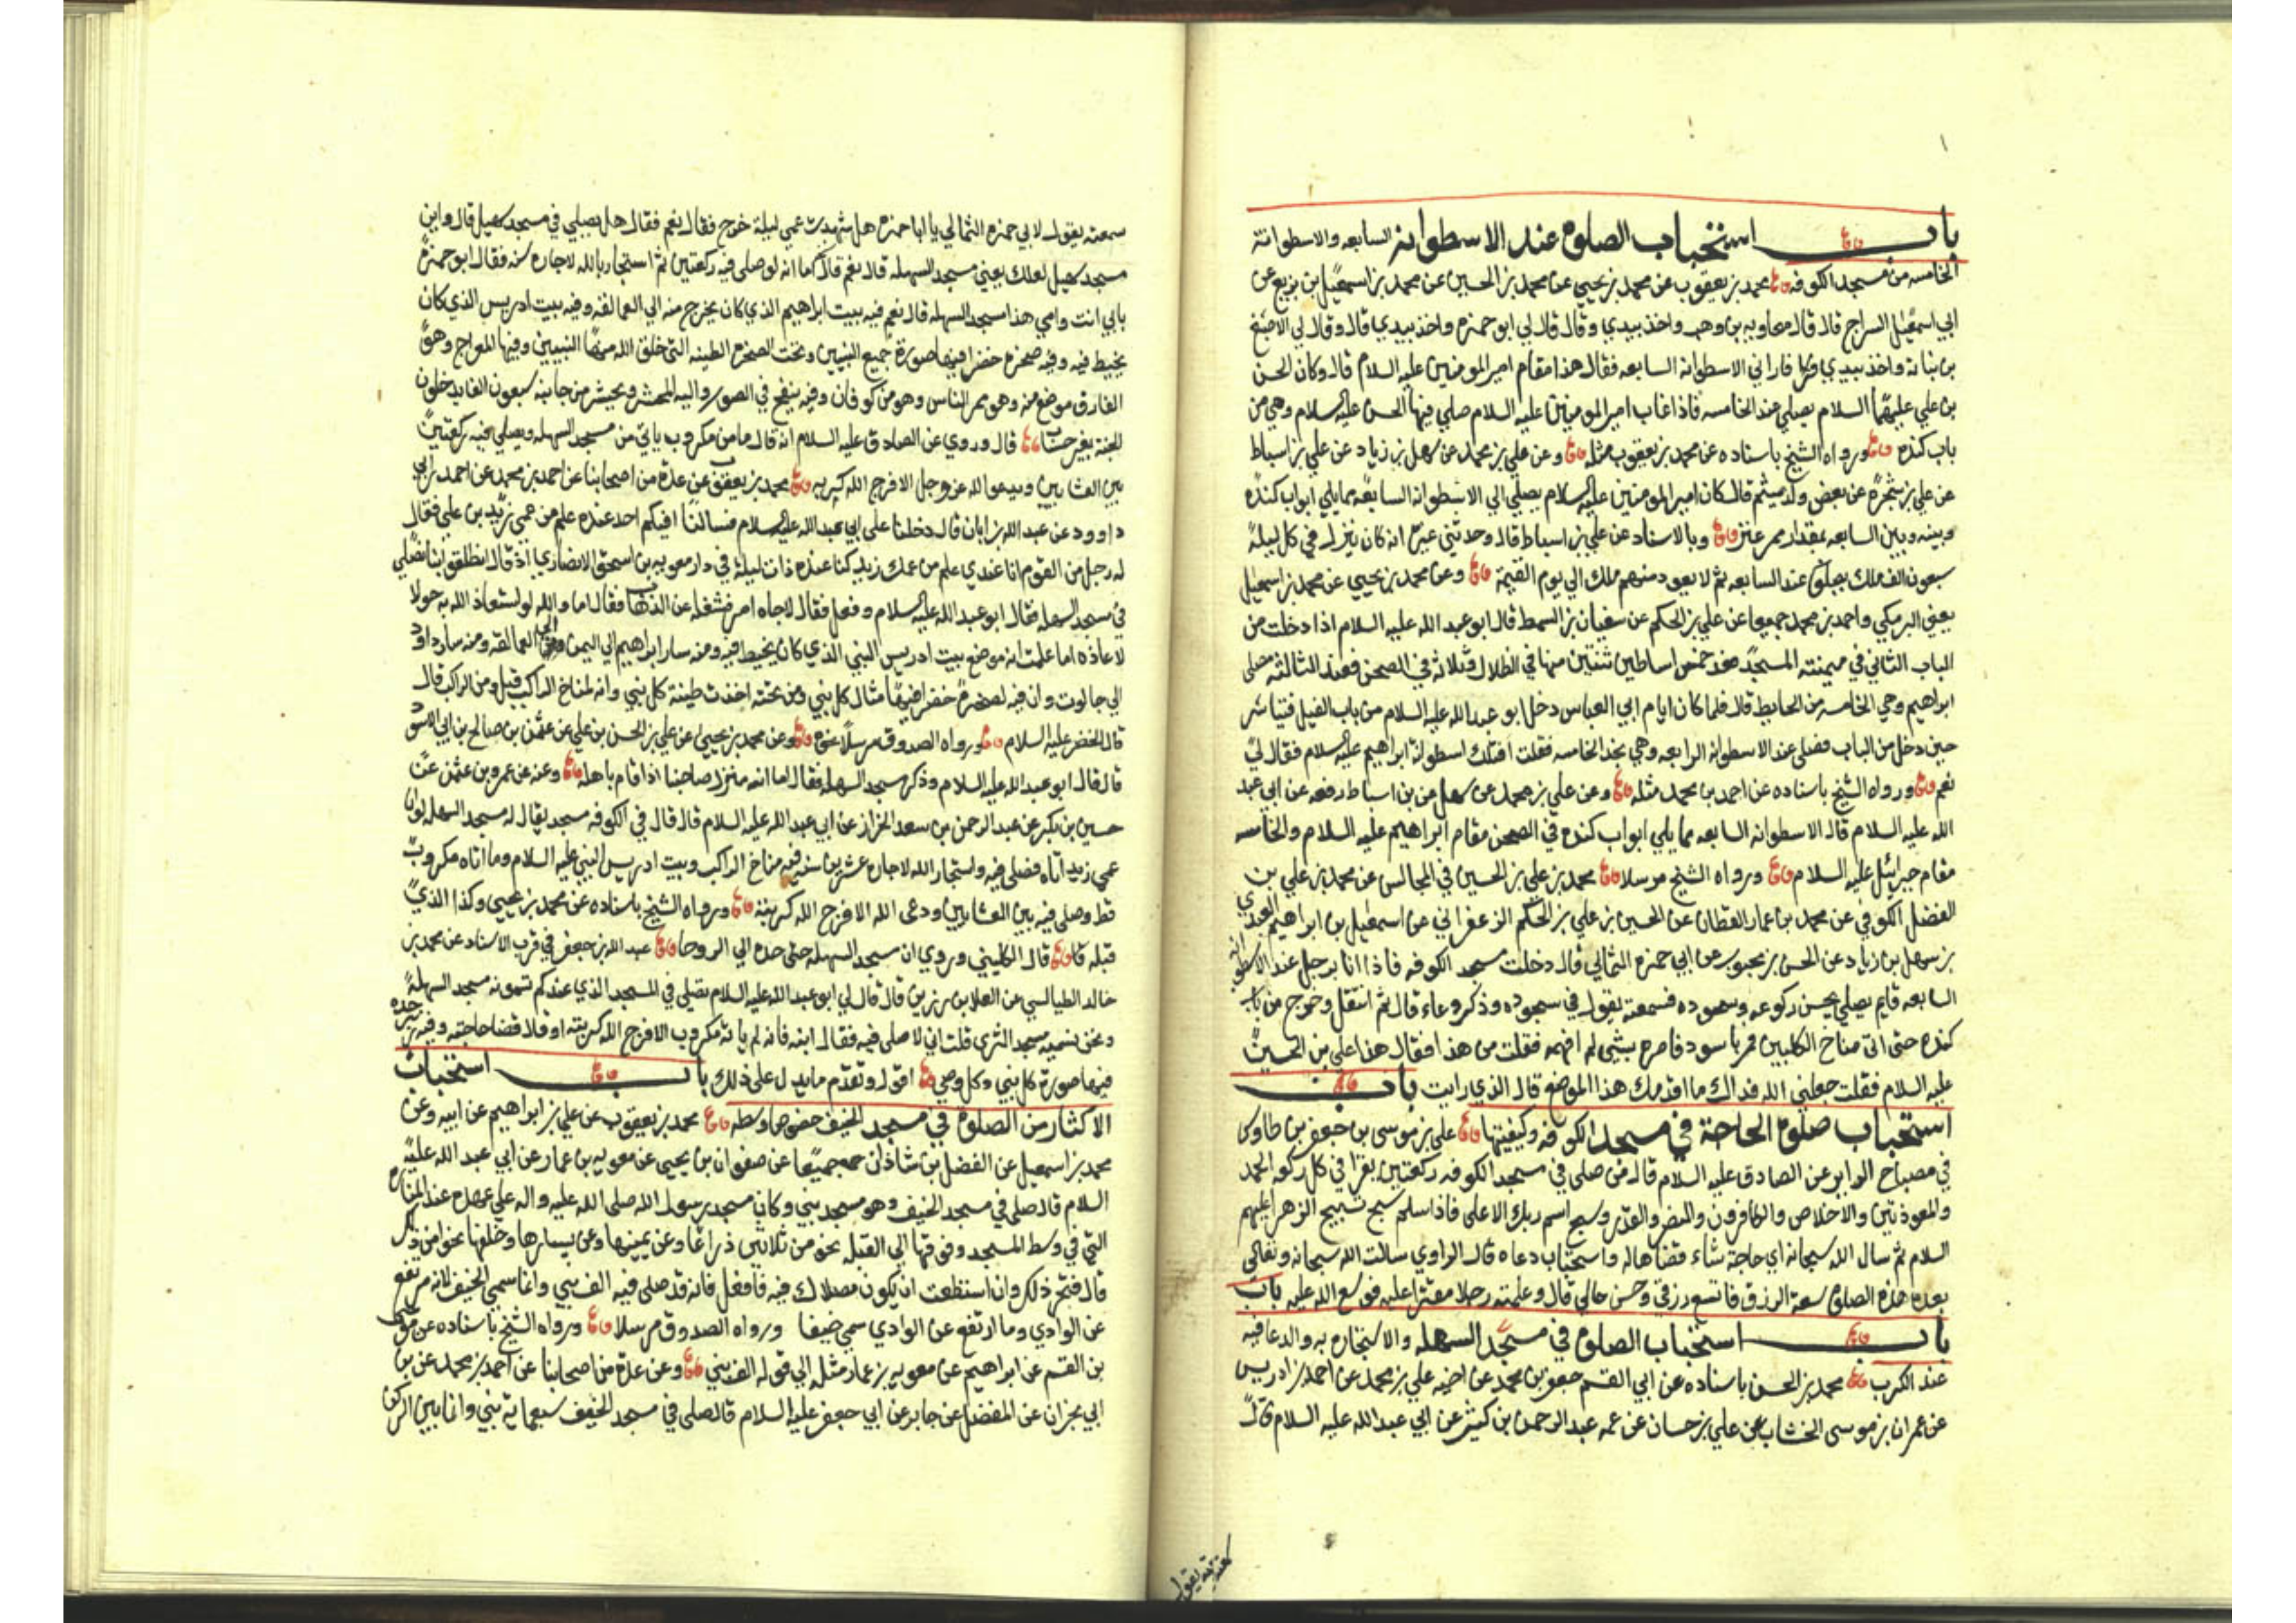 باب استحباب الصلوة عند الاسطوانة السابعه والاسطوانة
الخامسه من مسجد الكوفه محمد بن يعقوب عن محمد بن يحيى عن محمد بن الحسين عن محمد بن اسمعيل بن بزيع عن
ابي اسمعيل السراج قال قال معاويه بن وهب واخذ بيدي وقال قال لي ابو حمزه واخذ بيدي قال وقال لي الاصبغ
بن نباته واخذ بيدي فاراني الاسطوانه السابعه فقال هذا مقام امير المومنين عليه السلام قال وكان الحسن
بن علي عليهما السلام يصلي عند الخامسه فاذا غاب امير المومنين عليه السلام صلي فيها الحسن عليه السلام وهي من
باب كنده ورواه الشيخ باسناده عن محمد بن يعقوب مثله وعن علي بن محمد عن سهل بن زياد عن علي بن اسباط
عن علي بن شجره عن بعض ولد ميثم قال كان امير المومنين عليه السلام يصلي الي الاسطوانه السابعه مما يلي ابواب كنده
وبينه وبين السابعه مقدار ممر عنز وبالاسناد عن علي بن اسباط قال وحدثني غيره انه كان ينزل في كل ليلة
سبعون الف ملك يصلون عند السابعه ثم لا يعود منهم ملك الي يوم القيمة وعن محمد بن يحيي عن محمد بن اسمعيل
يعني البرمكي واحمد بن محمد جميعا عن علي بن الحكم عن سفيان بن السمط قال قال ابو عبد الله عليه السلام اذا دخلت من
الباب الثاني في ميمنة المسجد فعد خمس اساطين ثنتين منها في الظلال وثلاثه في الصحن فعند الثالثه مصلى
ابراهيم وهي الخامسه من الحايط قال فلما كان ايام ابي العباس دخل ابو عبد الله عليه السلام من باب الفيل فتياسر
حين دخل من الباب فصلي عند الاسطوانه الرابعه وهي بحذا الخامسه فقلت افتلك اسطوانة ابراهيم عليه السلام فقال لي
نعم ورواه الشيخ باسناده عن احمد بن محمد مثله وعن علي بن محمد عن سهل عن بن اسباط رفعه عن ابي عبد
الله عليه السلام قال الاسطوانه السابعه مما يلي ابواب كنده في الصحن مقام ابراهيم عليه السلام والخامسه
مقام جبرائيل عليه السلام ورواه الشيخ مرسلا محمد بن علي بن الحسين في المجالس عن محمد بن علي بن
الفضل الكوفي عن محمد بن عمار القطان عن الحسين بن علي بن الحكم الزعفراني عن اسمعيل بن ابراهيم العبدي
عن سهل بن زياد عن الحسن بن محبوب عن ابي حمزه الثمالي قال دخلت مسجد الكوفه فاذا انا برجل عند الاسطوانه
السابعه قايم يصلي يحسن ركوعه وسجوده فسمعته يقول في سجوده وذكر دعاء قال ثم انتقل وخرج من باب
كنده حتى اتى مناخ الكلبيين فمر باسود فامره بشي لم افهمه فقلت من هذا فقال هذا علي بن الحسين
عليه السلام فقلت جعلني الله فداك ما اقدمك هذا الموضع قال الذي رايت باب
استحباب صلوة الحاجة في مسجد الكوفه وكيفيتها علي بن موسى بن جعفر بن طاوس
في مصباح الزاير عن الصادق عليه السلام قال من صلى في مسجد الكوفه ركعتين يقرا في كل ركعه الحمد
والمعوذتين والاخلاص والكافرون والنصر والقدر وسبح اسم ربك الاعلى فاذا سلم سبح تسبيح الزهرا عليهم
السلام ثم سال الله سبحانه اي حاجة شاء قضاها له واستجاب دعاه قال الراوي سالت الله سبحانه وتعالي
بعد هذه الصلوة سعة الرزق فاتسع رزقي وحسن حالي قال وعلمته رجلا مقترا عليه فوسع الله عليه باب
باب استحباب الصلوة في مسجد السهله والاستجاره به والدعا فيه
عند الكرب محمد بن الحسن باسناده عن ابي القسم جعفر بن محمد عن اخيه علي بن محمد عن احمد بن ادريس
عن عمران بن موسى الخشاب عن علي بن حسان عن عمه عبد الرحمن بن كثير عن ابي عبد الله عليه السلام قال
سمعته يقول
سمعته يقول لابي حمزه الثمالي يا ابا حمزه هل شهدت عمي ليلة خرج فقال نعم فقال هل يصلي في مسجد سهيل قال واين
مسجد سهيل لعلك يعني مسجد السهله قال نعم قال اما انه لو صلى فيه ركعتين ثم استجار بالله لاجاره سنه فقال ابو حمزة
بابي انت وامي هذا مسجد السهله قال نعم فيه بيت ابراهيم الذي كان يخرج منه الي العمالقه وفيه بيت ادريس الذي كان
يخيط فيه وفيه صخره خضرا فيها صورة جميع النبيين وتحت الصخره الطينه التي خلق الله منها النبيين وفيها المعراج وهو
الفاروق موضع منه وهو ممر الناس وهو من كوفان وفيه ينفخ في الصور واليه المحشر ويحشر من جانبه سبعون الفا يدخلون
الجنه بغير حساب قال وروي عن الصادق عليه السلام انه قال ما من مكروب ياتي من مسجد السهله ويصلي فيه ركعتين
بين العشايين ويدعو الله عز وجل الا فرج الله كربه محمد بن يعقوب عن عدة من اصحابنا عن احمد بن محمد عن احمد بن ابي
داوود عن عبد الله بن ابان قال دخلنا على ابي عبد الله عليه السلام فسالنا افيكم احد عنده علم من عمي زيد بن علي فقال
له رجل من القوم انا عندي علم من عمك زيد كنا عنده ذات ليلة في دار معويه بن اسحق الانصاري اذ قال انطلقوا بنا نصلي
في مسجد السهله فقال ابو عبد الله عليه السلام وفعل فقال لا جاه امر فشغله عن الذهاب فقال اما والله لو استعاذ الله به حولا
لاعاذه اما علمت انه موضع بيت ادريس النبي الذي كان يخيط فيه ومنه سار ابراهيم الي اليمن الي العمالقه ومنه سار داود
الي جالوت وان فيه لصخرة خضرا فيها مثال كل نبي ومن تحته اخذت طينة كل نبي وانه لمناخ الراكب قيل ومن الراكب قال
قال الخضر عليه السلام ورواه الصدوق مرسلا نحوه وعن محمد بن يحيي عن علي بن الحسن بن علي عن عثمن بن صالح بن ابي الاسود
قال قال ابو عبد الله عليه السلام وذكر مسجد السهله فقال اما انه منزل صاحبنا اذا قام باهله وعنه عن عمرو بن عثمن عن
حسين بن بكر عن عبد الرحمن بن سعد الخزاز عن ابي عبد الله عليه السلام قال قال في الكوفه مسجد يقال له مسجد السهله لو ان
عمي زيد اتاه فصلى فيه واستجار الله لاجاره عشرين سنه فيه مناخ الراكب وبيت ادريس النبي عليه السلام وما اتاه مكروب
قط وصلى فيه بين العشايين ودعى الله الا فرج الله كربته ورواه الشيخ باسناده عن محمد بن يحيي وكذا الذي
قبله قال الكليني وروي ان مسجد السهله حتى حده الي الروحا عبد الله بن جعفر في قرب الاسناد عن محمد بن
خالد الطيالسي عن العلا بن رزين قال قال لي ابو عبد الله عليه السلام تصلي في المسجد الذي عندكم تسمونه مسجد السهلة
ونحن نسميه مسجد الثرى قلت اني لاصلي فيه فقال ايته فانه لم ياته مكروب الا فرج الله كربته او قال قضا حاجته وفيه زبرجده
فيها صورة كل نبي وكل وصي اقول وتقدم ما يدل على ذلك باب استحباب
الاكثار من الصلوة في مسجد الخيف خصوصا وسطه محمد بن يعقوب عن علي بن ابراهيم عن ابيه وعن
محمد بن اسمعيل عن الفضل بن شاذان جميعا عن صفوان بن يحيي عن معويه بن عمار عن ابي عبد الله عليه
السلام قال صلي في مسجد الخيف وهو مسجد بني وكان مسجد رسول الله صلى الله عليه واله علي عهده عند المناره
التي في وسط المسجد وفوقها الي القبله نحو من ثلاثين ذراعا وعن يمينها وعن يسارها وخلفها نحو من ذلك
قال فتحر ذلك وان استطعت ان يكون مصلاك فيه فافعل فانه قد صلى فيه الف نبي وانما سمي الخيف لانه مرتفع
عن الوادي وما ارتفع عن الوادي سمي خيفا ورواه الصدوق مرسلا ورواه الشيخ باسناده عن موسى
بن القسم عن ابراهيم عن معويه بن عمار مثله الي قوله الف نبي وعن عدة من اصحابنا عن احمد بن محمد عن بن
ابي نجران عن المفضل عن جابر عن ابي جعفر عليه السلام قال صلي في مسجد الخيف سبعماية نبي وان ما بين الركن